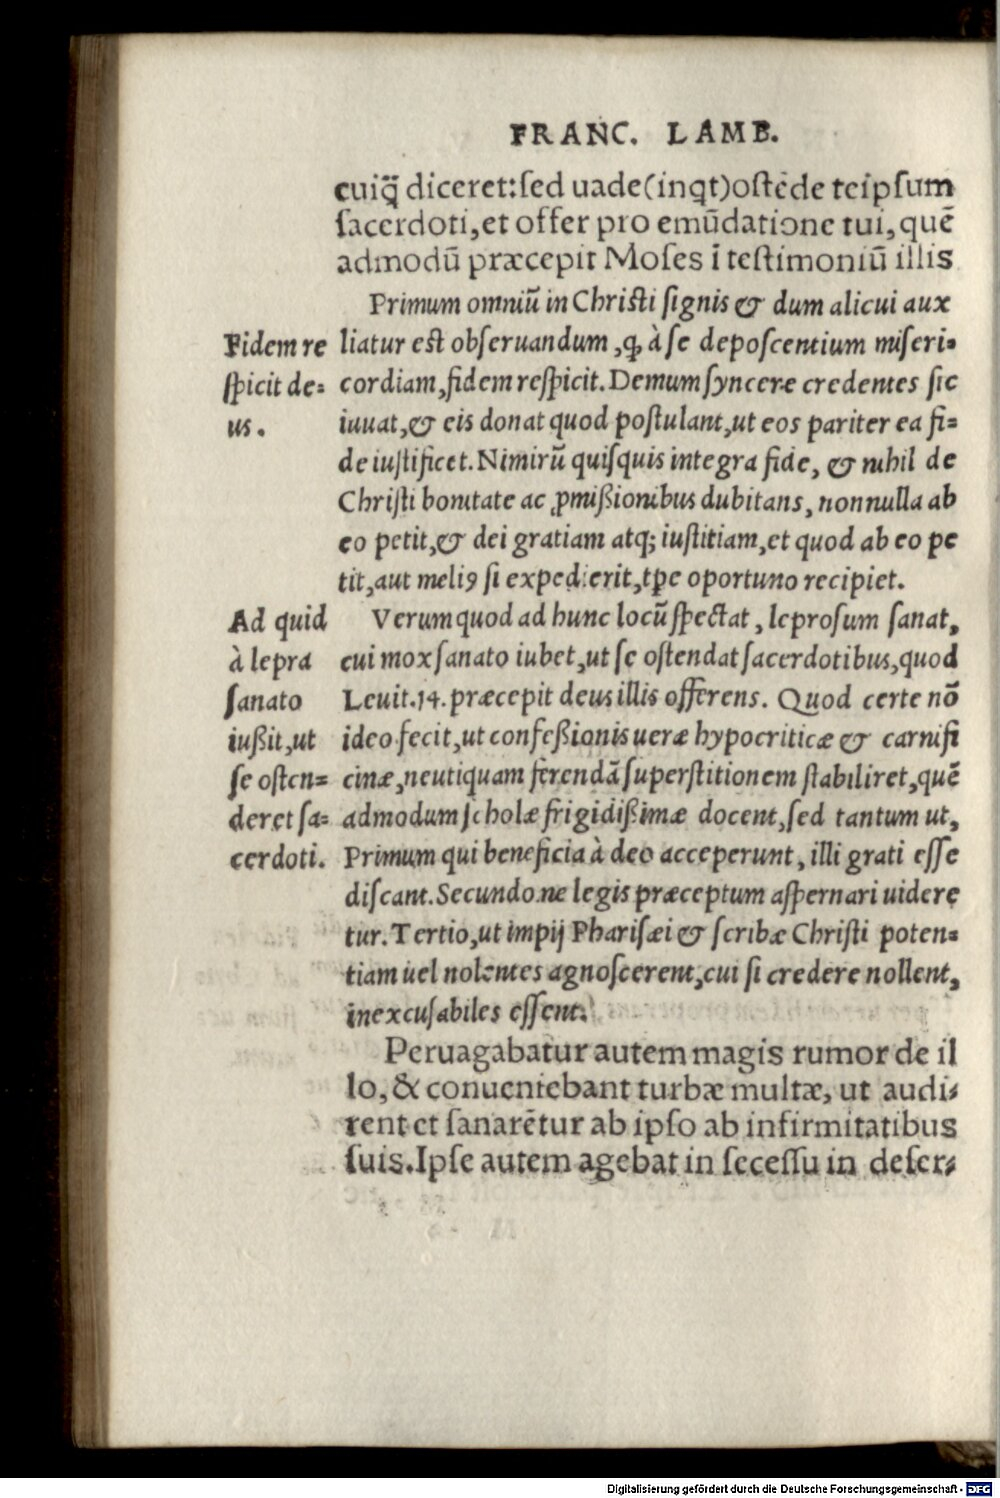 FRANC. LAMB.
cuiq̃ diceret:sed uade(inqt)ostēde teipsum
sacerdoti,et offer pro emūdatione tui,quē
admodū præcepit Moses ī testimoniū illis
Primum omniū in Christi signis & dum alicui aux
liatur est obseruandum,ꝙ à se deposcentium miseri-
cordiam,fidem respicit.Demum syncere credentes sic
iuuat,& eis donat quod postulant,ut eos pariter ea fi=
de iustificet.Nimirū quisquis integra fide, & nihil de
Christi bonitate ac ꝓmißionibus dubitans, nonnulla ab
eo petit,& dei gratiam atq; iustitiam,et quod ab eo pe
tit,aut meliꝰ si expedierit,tp̄e oportuno recipiet.
Verum quod ad hunc locū spectat, leprosum sanat,
cui mox sanato iubet,ut se ostendat sacerdotibus,quod
Leuit.14.præcepit deus illis offerens. Quod certe nō
ideo fecit,ut confeßionis ueræ hypocriticæ & carnifi
cinæ,neutiquam ferendā superstitionem stabiliret,quē
admodum scholæ frigidißimæ docent,sed tantum ut,
Primum qui beneficia à deo acceperunt, illi grati esse
discant.Secundo.ne legis præceptum aspernari uidere
tur.Tertio,ut impij Pharisæi & scribæ Christi poten=
tiam uel nolentes agnoscerent,cui si credere nollent,
inexcusabiles essent.
Peruagabatur autem magis rumor de il
lo,& conueniebant turbæ multæ, ut audi-
rent et sanarētur ab ipso ab infirmitatibus
suis.Ipse autem agebat in secessu in deser-
Fidem re
spicit de=
us.
Ad quid
à lepra
sanato
iußit,ut
se osten=
deret sa=
cerdoti.
Digitalisierung gefördert durch die Deutsche Forschungsgemeinschaft - DFG